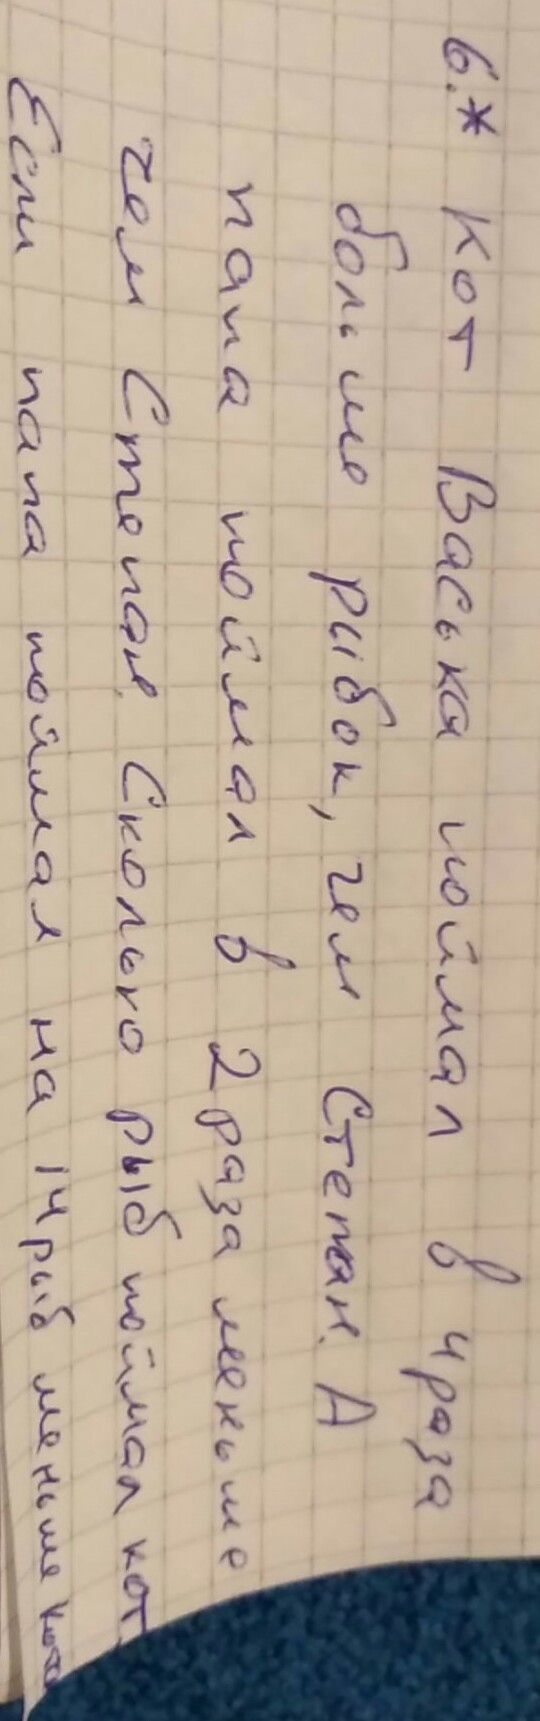 6.* Кот Васька поймал в 4 раза
больше рыбок, чем Степан. А
папа поймал в 2 раза меньше
чем Степан. Сколько рыб поймал кот.
Если папа поймал на 14 рыб меньше кота